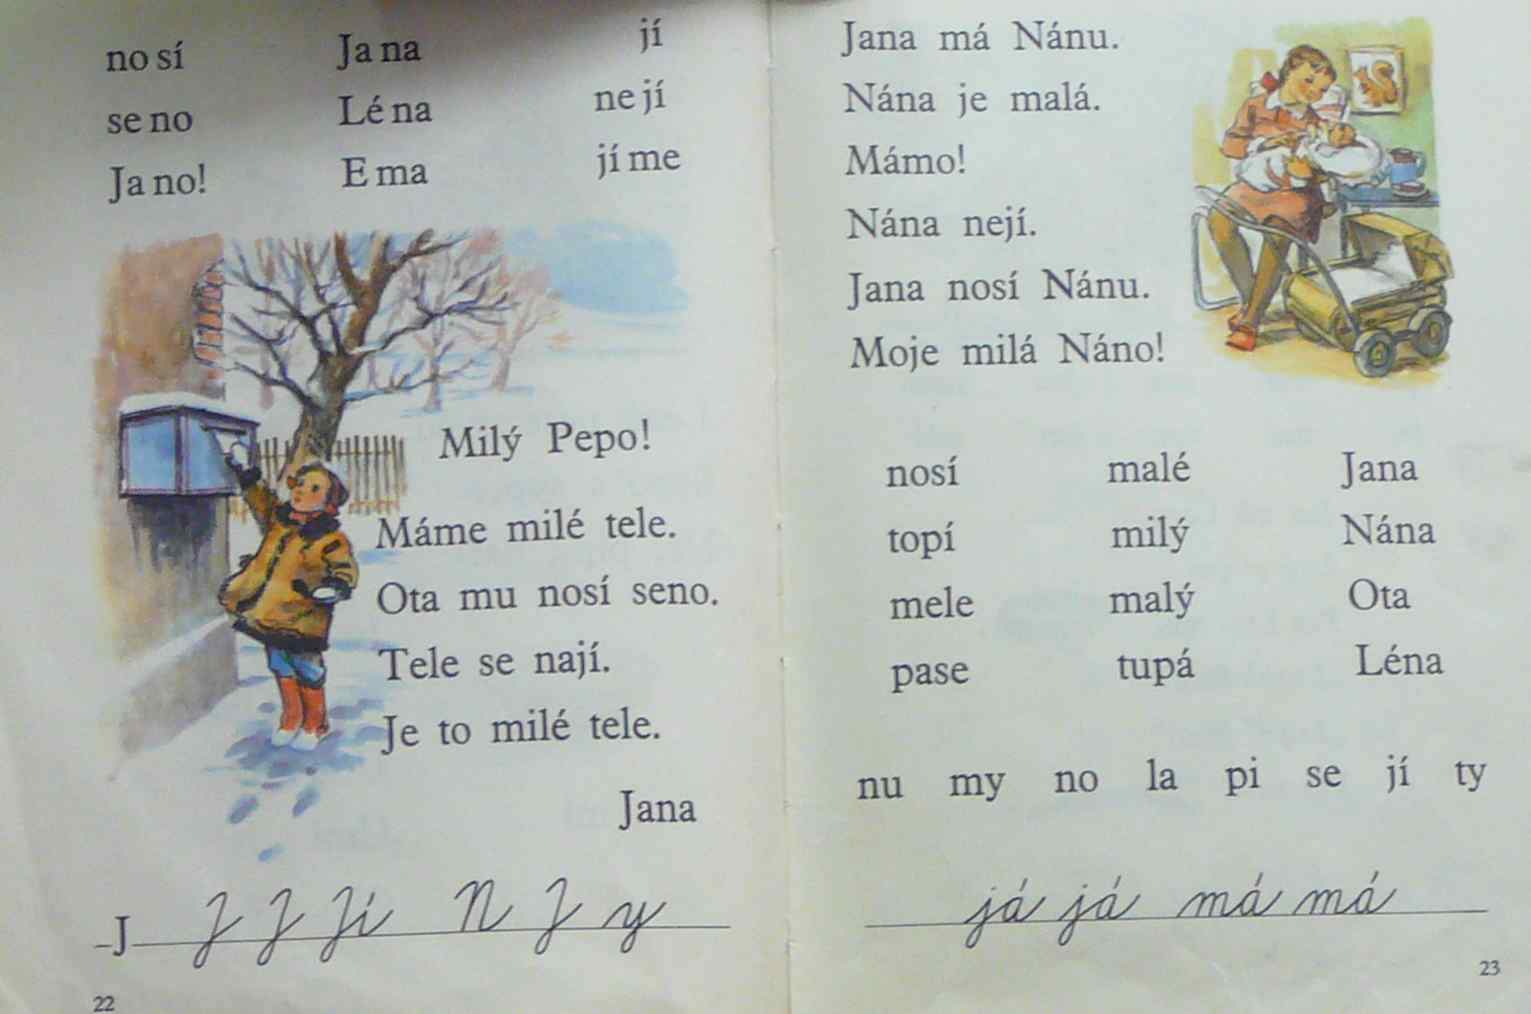 no sí Ja na jí
se no Lé na ne jí
Ja no! E ma jí me
Milý Pepo!
Máme milé tele.
Ota mu nosí seno.
Tele se nají.
Je to milé tele.
Jana
J J J Jí N J y
22
Jana má Nánu.
Nána je malá.
Mámo!
Nána nejí.
Jana nosí Nánu.
Moje milá Náno!
nosí malé Jana
topí milý Nána
mele malý Ota
pase tupá Léna
nu my no la pi se jí ty
já já má má
23